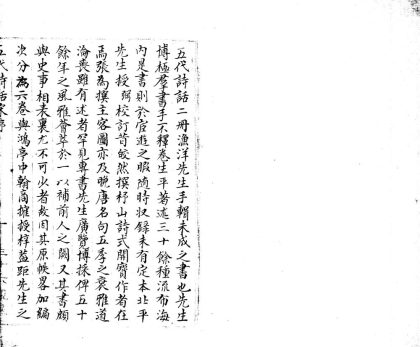 五代詩話二冊漁洋先生手輯未成之書也先生
博極羣書手不釋卷生平著述三十餘種流布海
內是書則於宦遊之暇隨時收錄未有定本北平
先生授弼校訂昔皎然撰杼山詩式開寶作者在
焉張為撰主客圖亦及晚唐名句五季之衰雅道
淪喪雖有述者罕見專書先生廣覽博採俾五十
餘年之風雅薈萃於一以補前人之闕又其書頗
與史事相表裏尤不可少者故因其原帙畧加編
次分為六卷與鴻亭中翰商搉授梓蓋距先生之
五代詩話序